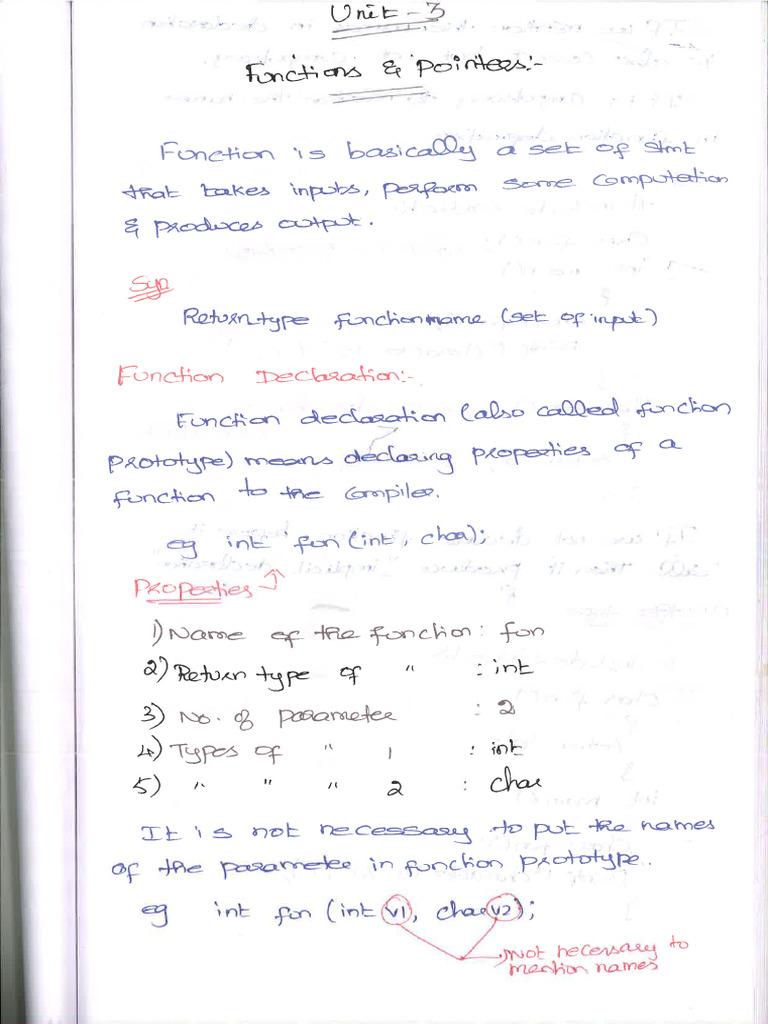 Unit - 3
Functions & Pointers:-
Function is basically a set of stmt
that takes inputs, perform some computation
& produces output.
Syn
Return type function name (set of input)
Function Declaration:-
Function declaration (also called function
prototype) means declaring properties of a
function to the compiler.
eg int fun (int, char);
Properties
1) Name of the function : fun
2) Return type of " : int
3) No. of parameter : 2
4) Types of " 1 : int
5) " " " 2 : char
It is not necessary to put the names
of the parameter in function prototype.
eg int fun (int v1, char v2);
Not necessary to
mention names